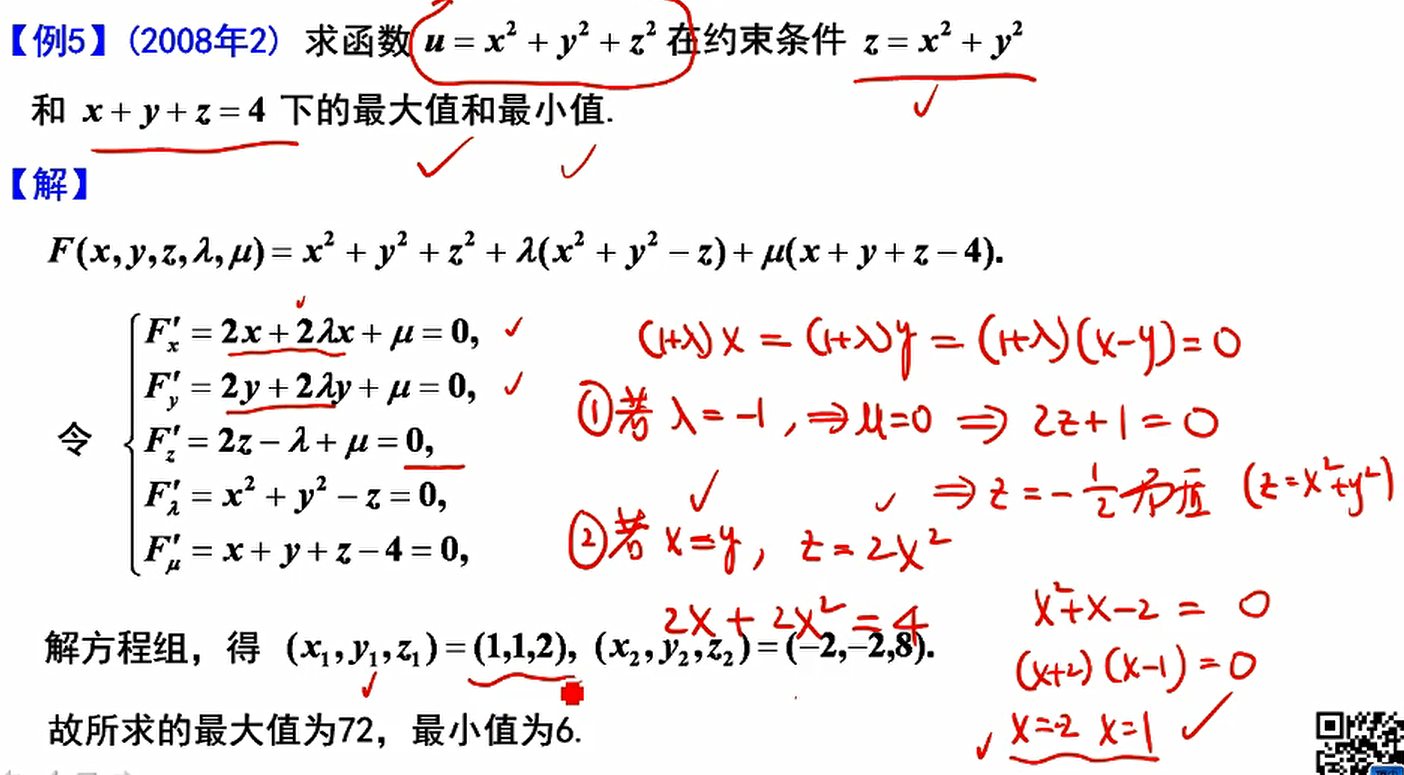 【例5】(2008年2) 求函数 u = x² + y² + z² 在约束条件 z = x² + y²
和 x + y + z = 4 下的最大值和最小值.
【解】
F(x, y, z, λ, μ) = x² + y² + z² + λ(x² + y² − z) + μ(x + y + z − 4).
令
F′x = 2x + 2λx + μ = 0,
F′y = 2y + 2λy + μ = 0,
F′z = 2z − λ + μ = 0,
F′λ = x² + y² − z = 0,
F′μ = x + y + z − 4 = 0,
(1+λ)x = (1+λ)y = (1+λ)(x−y) = 0
①若 λ = −1 , ⇒ μ=0 ⇒ 2z+1 = 0
⇒ z = −1/2 (z=x²+y²)
②若 x=y, z = 2x²
2x + 2x² = 4
x²+x−2 = 0
(x+2)(x−1) = 0
x=−2 x=1
解方程组，得 (x₁, y₁, z₁) = (1,1,2), (x₂, y₂, z₂) = (−2,−2,8).
故所求的最大值为72，最小值为6.